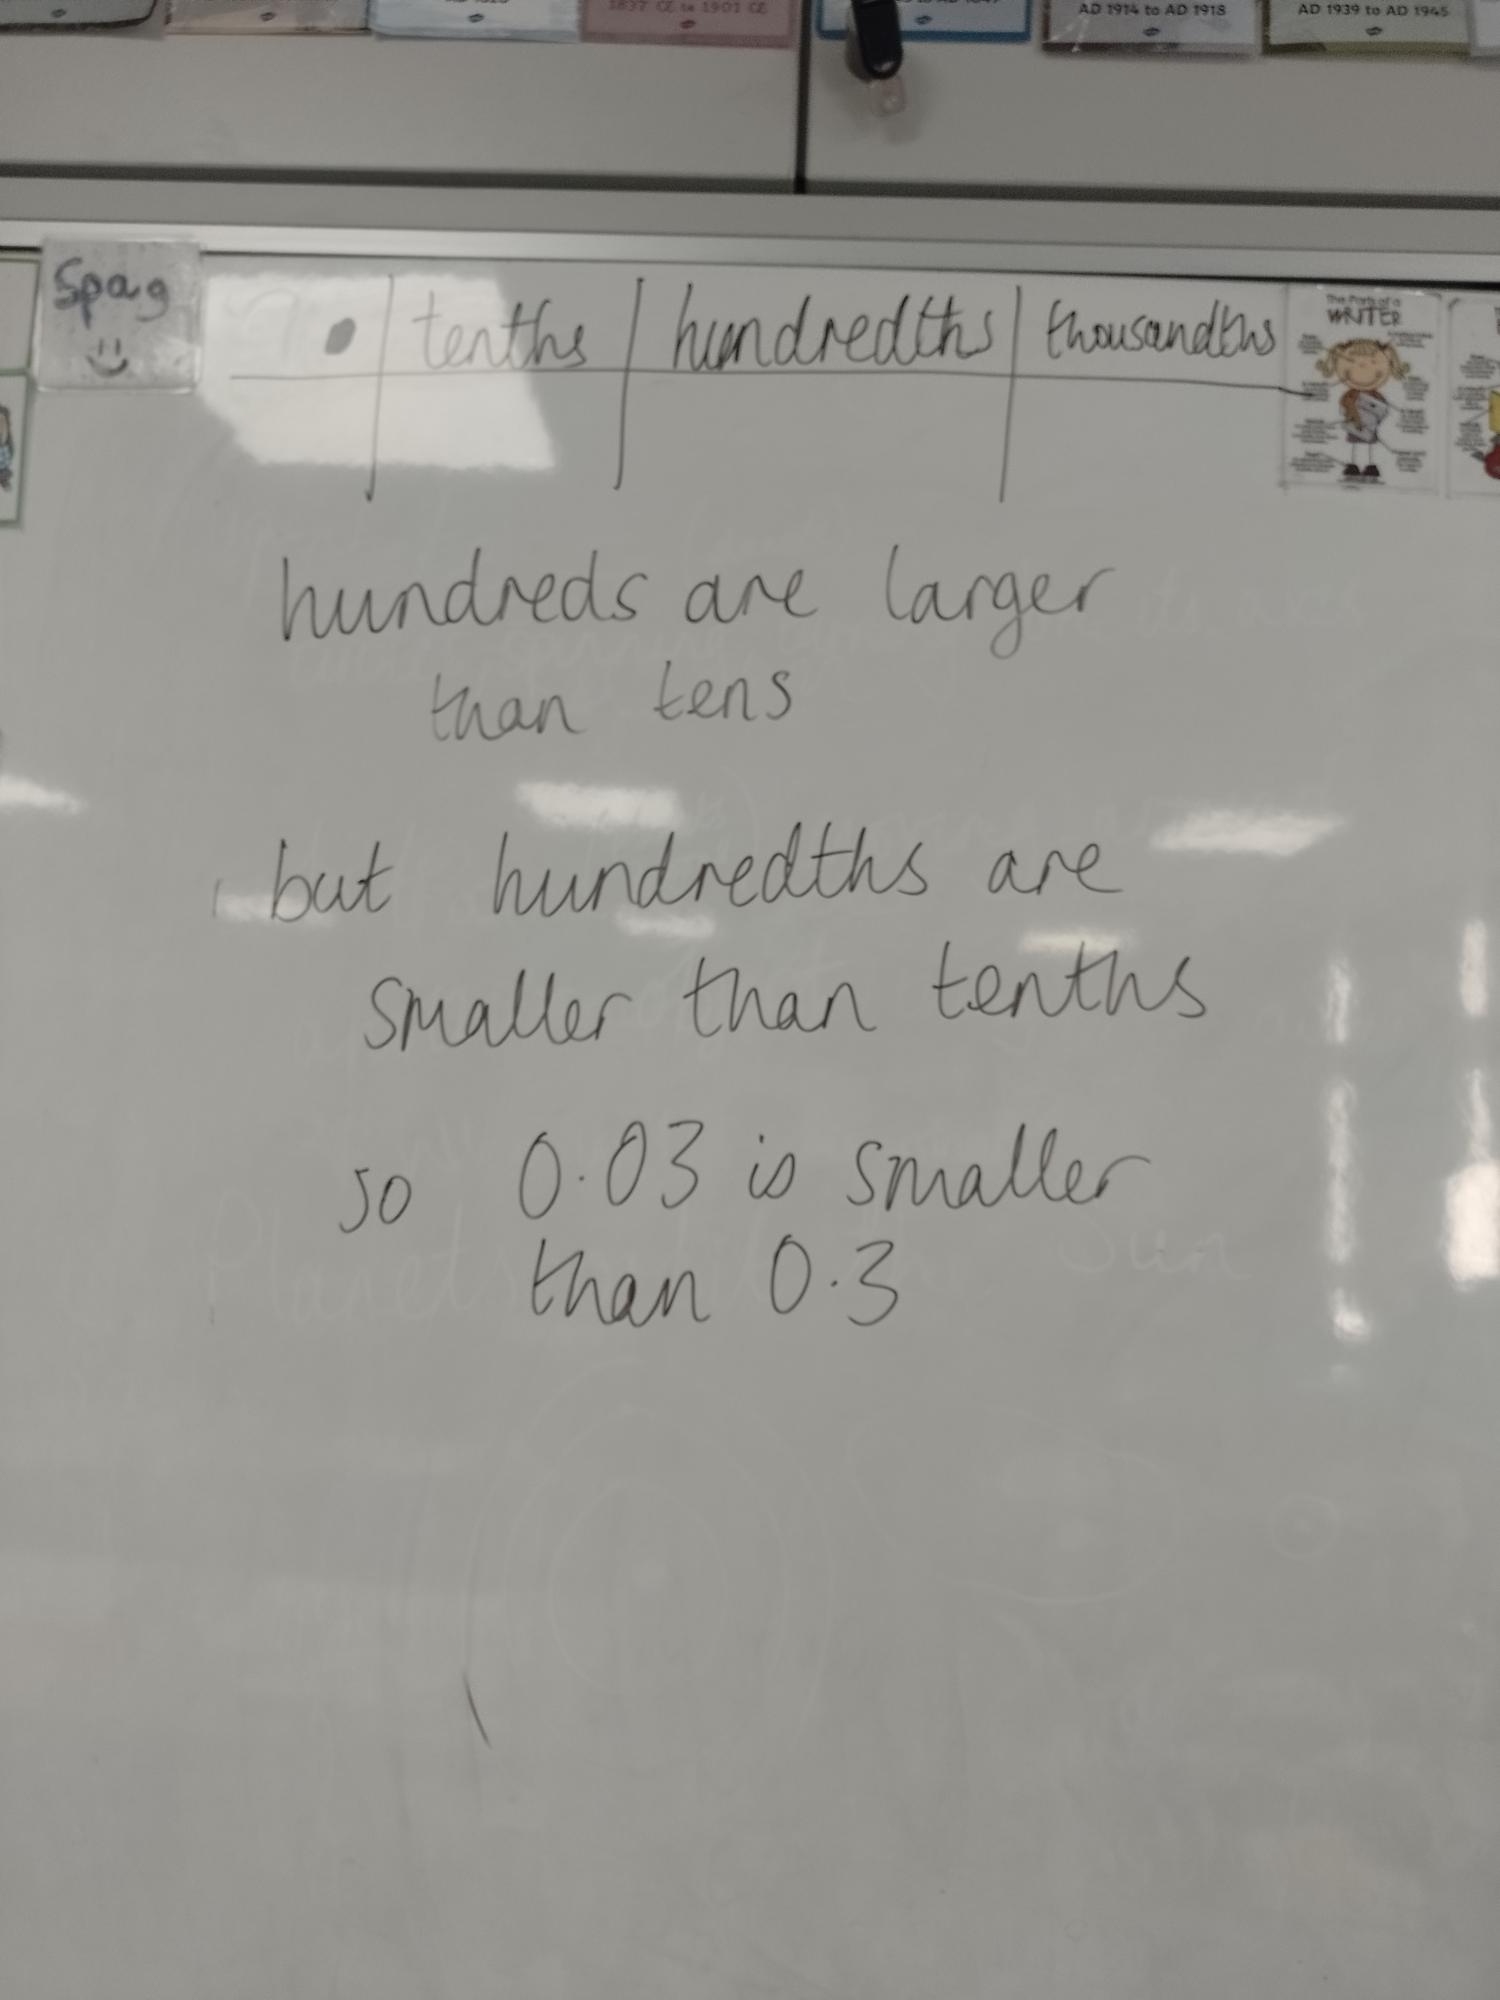 1837 CE to 1901 CE
AD 1914 to AD 1918
AD 1939 to AD 1945
Spag
tenths hundredths thousandths
The Parts of a
WRITER
hundreds are larger
than tens
but hundredths are
smaller than tenths
so 0.03 is smaller
than 0.3
Planets Sun